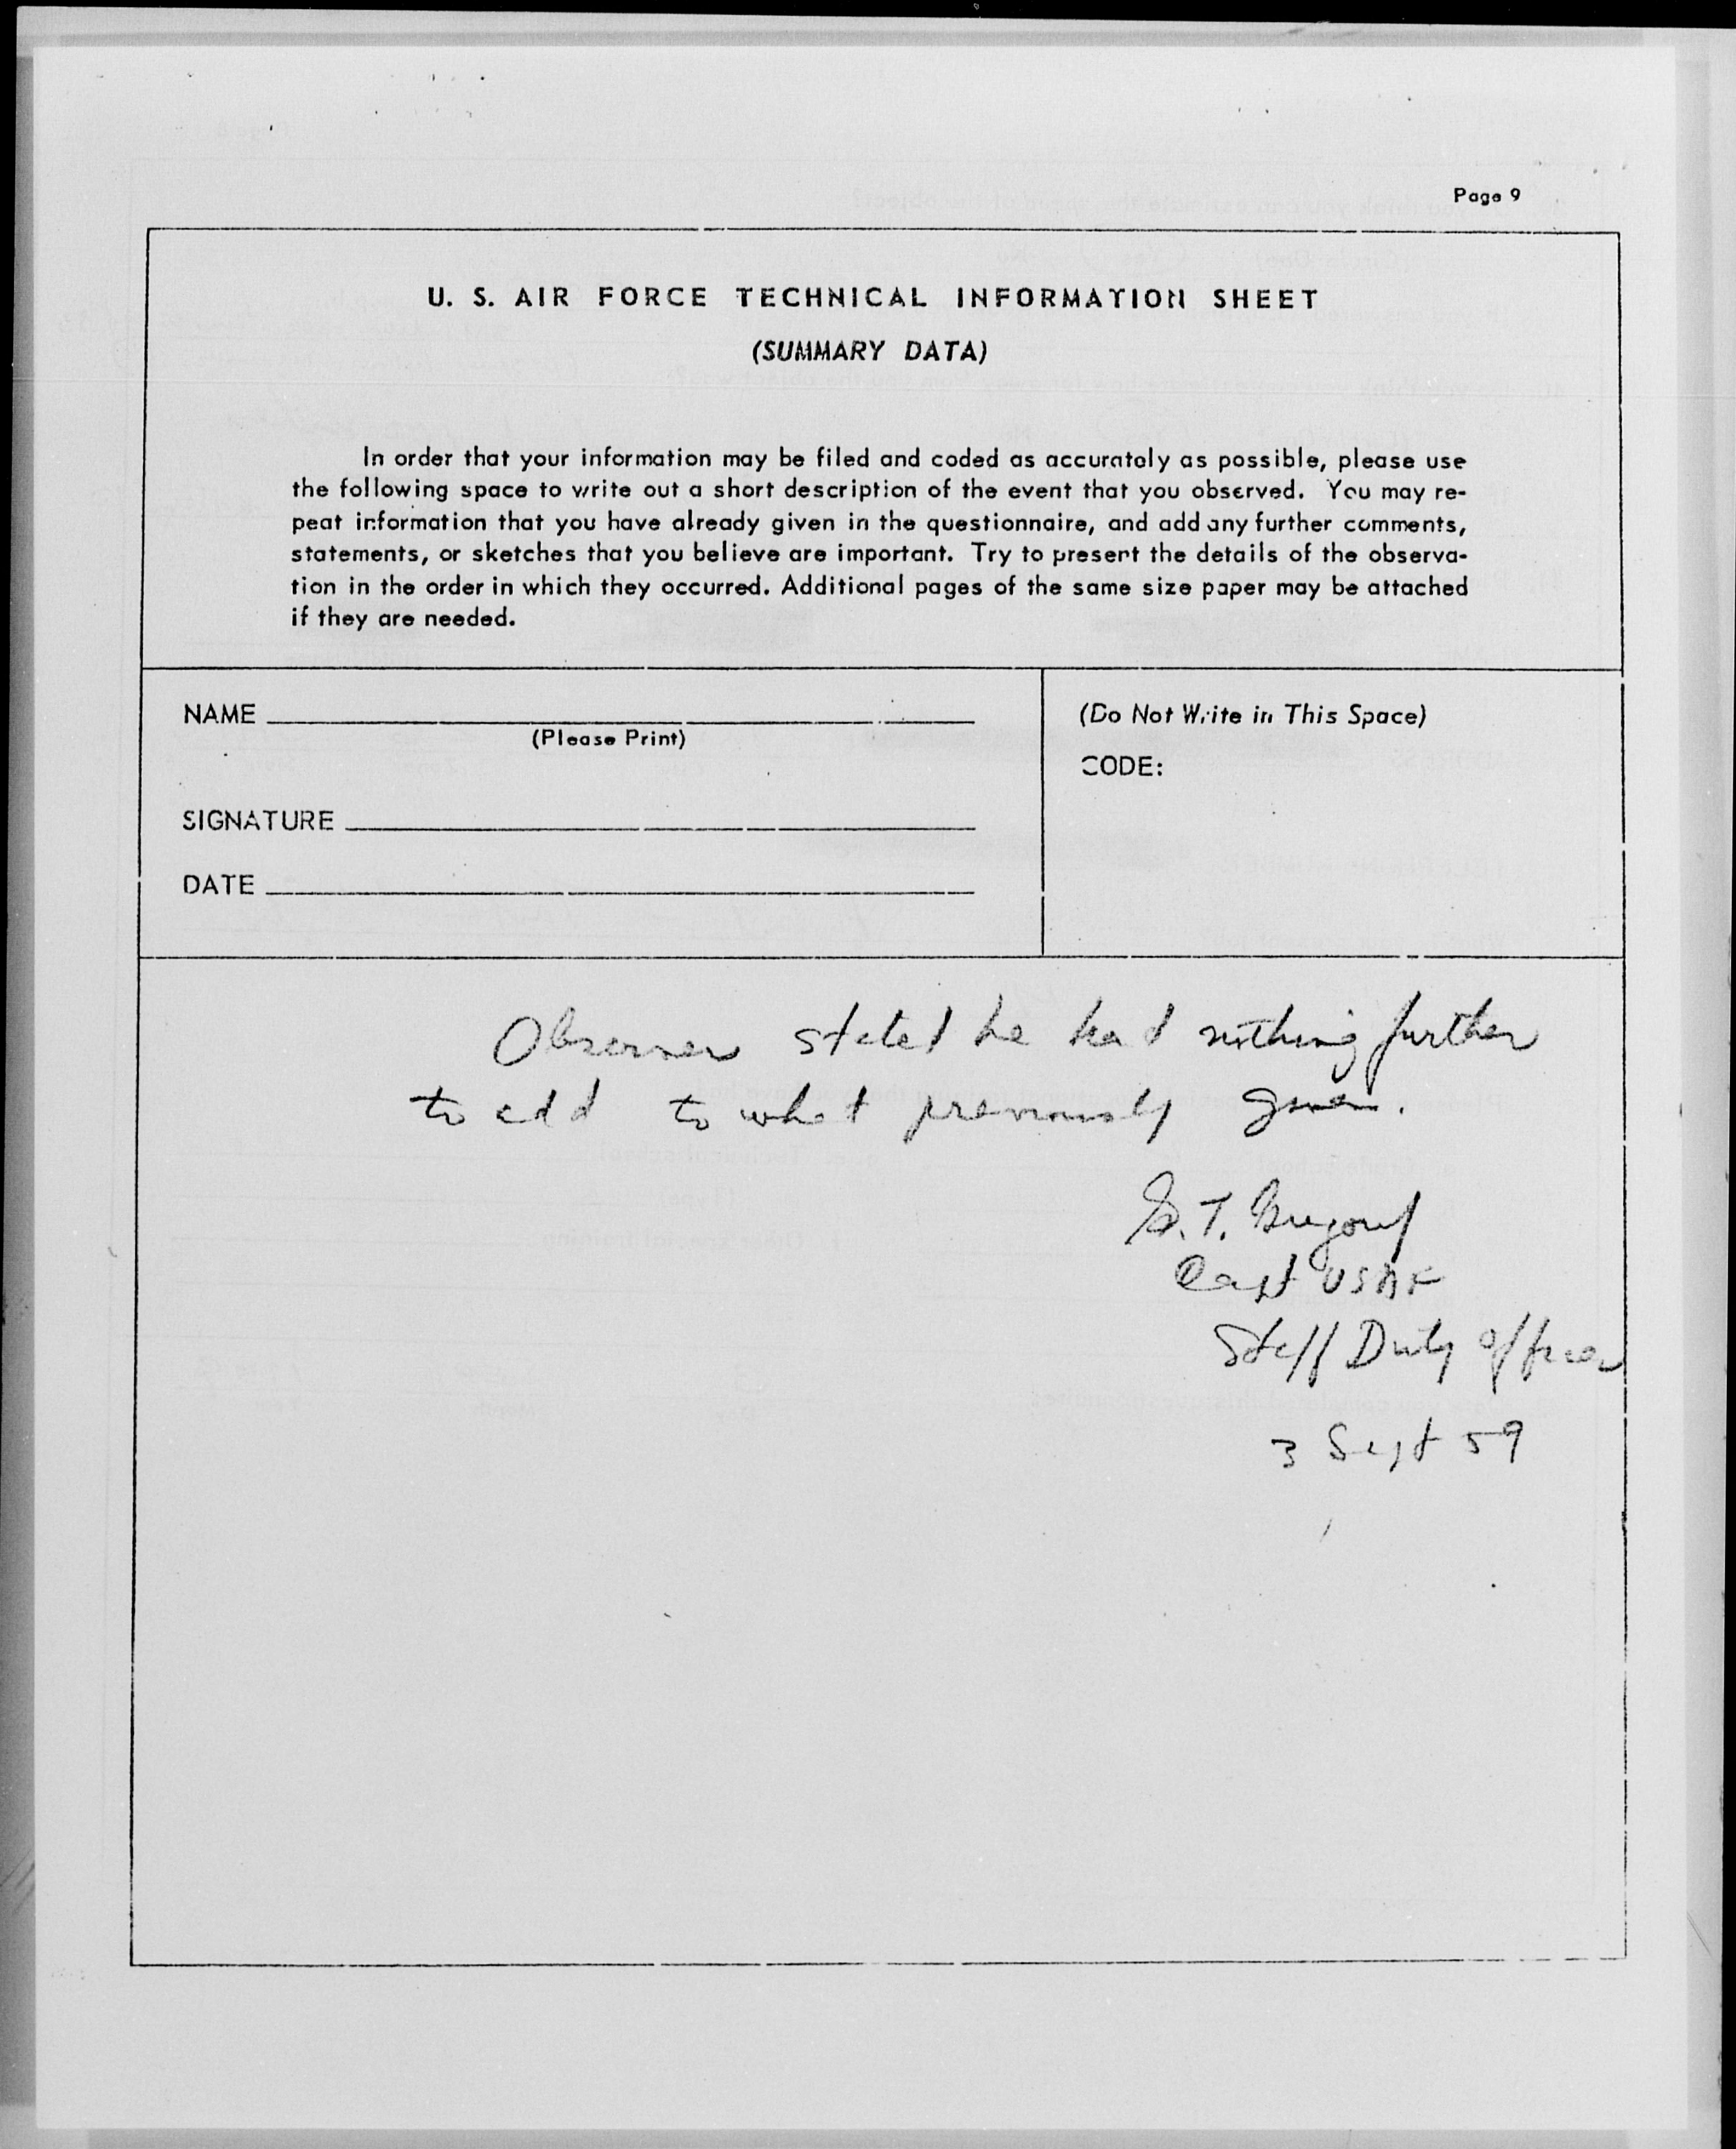 Page 9
U. S. AIR FORCE TECHNICAL INFORMATION SHEET
(SUMMARY DATA)
In order that your information may be filed and coded as accurately as possible, please use
the following space to write out a short description of the event that you observed. You may re-
peat information that you have already given in the questionnaire, and add any further comments,
statements, or sketches that you believe are important. Try to present the details of the observa-
tion in the order in which they occurred. Additional pages of the same size paper may be attached
if they are needed.
NAME
(Please Print)
SIGNATURE
DATE
(Do Not Write in This Space)
CODE:
Observer stated he had nothing further
to add to what previously given.
T. Gregory
Capt USAF
Staff Duty Officer
3 Sept 59